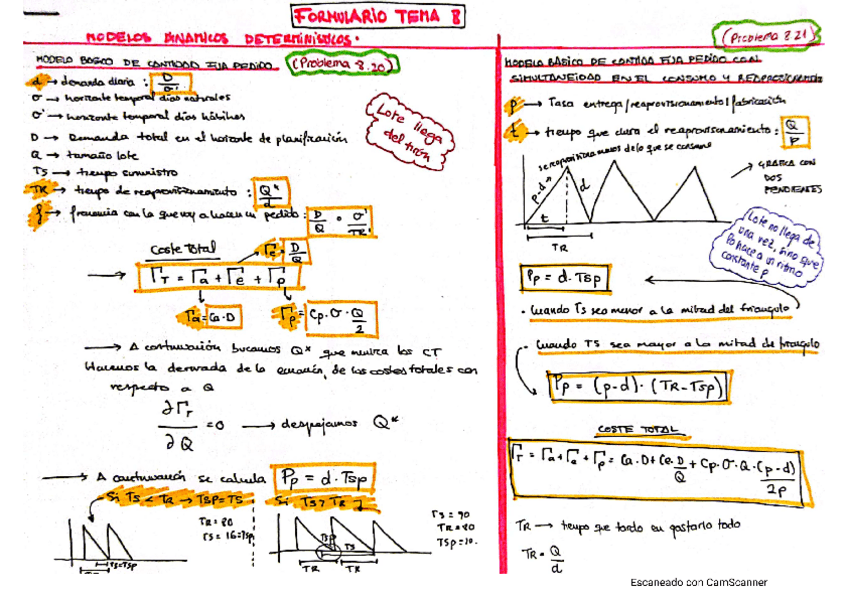 FORMULARIO TEMA 8
MODELOS DINAMICOS DETERMINISTICOS.
MODELO BASICO DE CANTIDAD FIJA PEDIDO (Problema 8.20)
d → demanda diaria : D/σ'
σ → horizonte temporal días naturales
σ' → horizonte temporal días hábiles
D → Demanda total en el horizonte de planificación
Q → tamaño lote
TS → tiempo suministro
TR → tiempo de reaprovisionamiento : Q*/d
f → frecuencia con la que voy a hacer un pedido : D/Q = σ'/TR
Lote llega
del tirón
Coste Total
Γe = D/Q
→ ΓT = Γa + Γe + Γp
Γa = Ca·D
Γp = Cp·σ·Q/2
→ A continuación buscamos Q* que minimiza los CT
Hacemos la derivada de la ecuación, de los costes totales con
respecto a Q
∂ΓT/∂Q = 0 → despejamos Q*
→ A continuación se calcula Pp = d·Tsp
Si TS < TR → TSP=TS
Si TS > TR
TR = 80
TS = 16=Tsp
TS=TSP
TR
TSP
TS
TR TR
TS = 90
TR = 80
TSp = 10.
(Problema 8.21)
MODELO BÁSICO DE CANTIDAD FIJA PEDIDO CON
SIMULTANEIDAD EN EL CONSUMO Y REAPROVISIONAMIENTO
p → Tasa entrega/reaprovisionamiento/fabricación
t → tiempo que dura el reaprovisionamiento : Q/p
se reaprovisiona menos de lo que se consume
p-d
d
t
TR
→ GRAFICA CON
DOS
PENDIENTES
Lote no llega de
una vez, sino que
lo hace a un ritmo
constante p
Pp = d·Tsp
· Cuando Ts sea menor a la mitad del triangulo
· Cuando TS sea mayor a la mitad de triangulo
Pp = (p-d)·(TR-Tsp)
COSTE TOTAL
ΓT = Γa + Γe + Γp = Ca·D + Ce·D/Q + Cp·σ·Q·(p-d)/2p
TR → tiempo que tardo en gastarlo todo
TR = Q/d
Escaneado con CamScanner